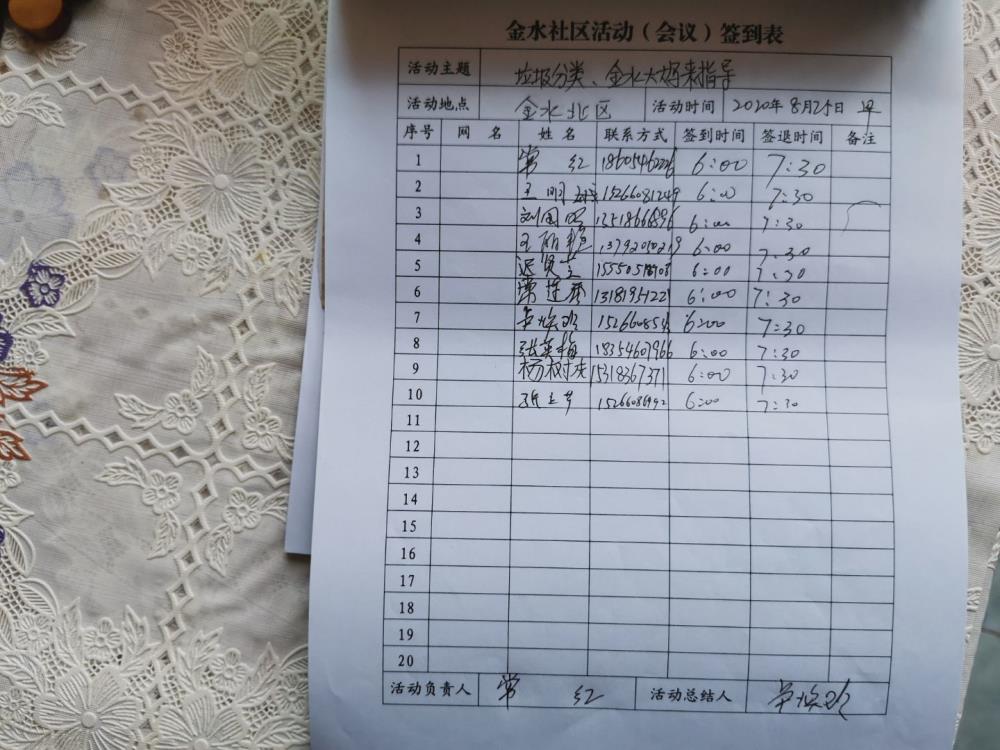 金水社区活动（会议）签到表
活动主题 垃圾分类、金水大妈来指导
活动地点 金水北区 活动时间 2020年8月25日 早
序号 网 名 姓 名 联系方式 签到时间 签退时间 备注
1 常 红 18605462226 6:00 7:30
2 王明 15266081249 6:00 7:30
3 刘国 6:00 7:30
4 王丽艳 6:00 7:30
5 迟贤芝 6:00 7:30
6 6:00 7:30
7 6:00 7:30
8 张英梅 18354607966 6:00 7:30
9 杨树庆 15318367371 6:00 7:30
10 6:00 7:30
11
12
13
14
15
16
17
18
19
20
活动负责人 常 红 活动总结人